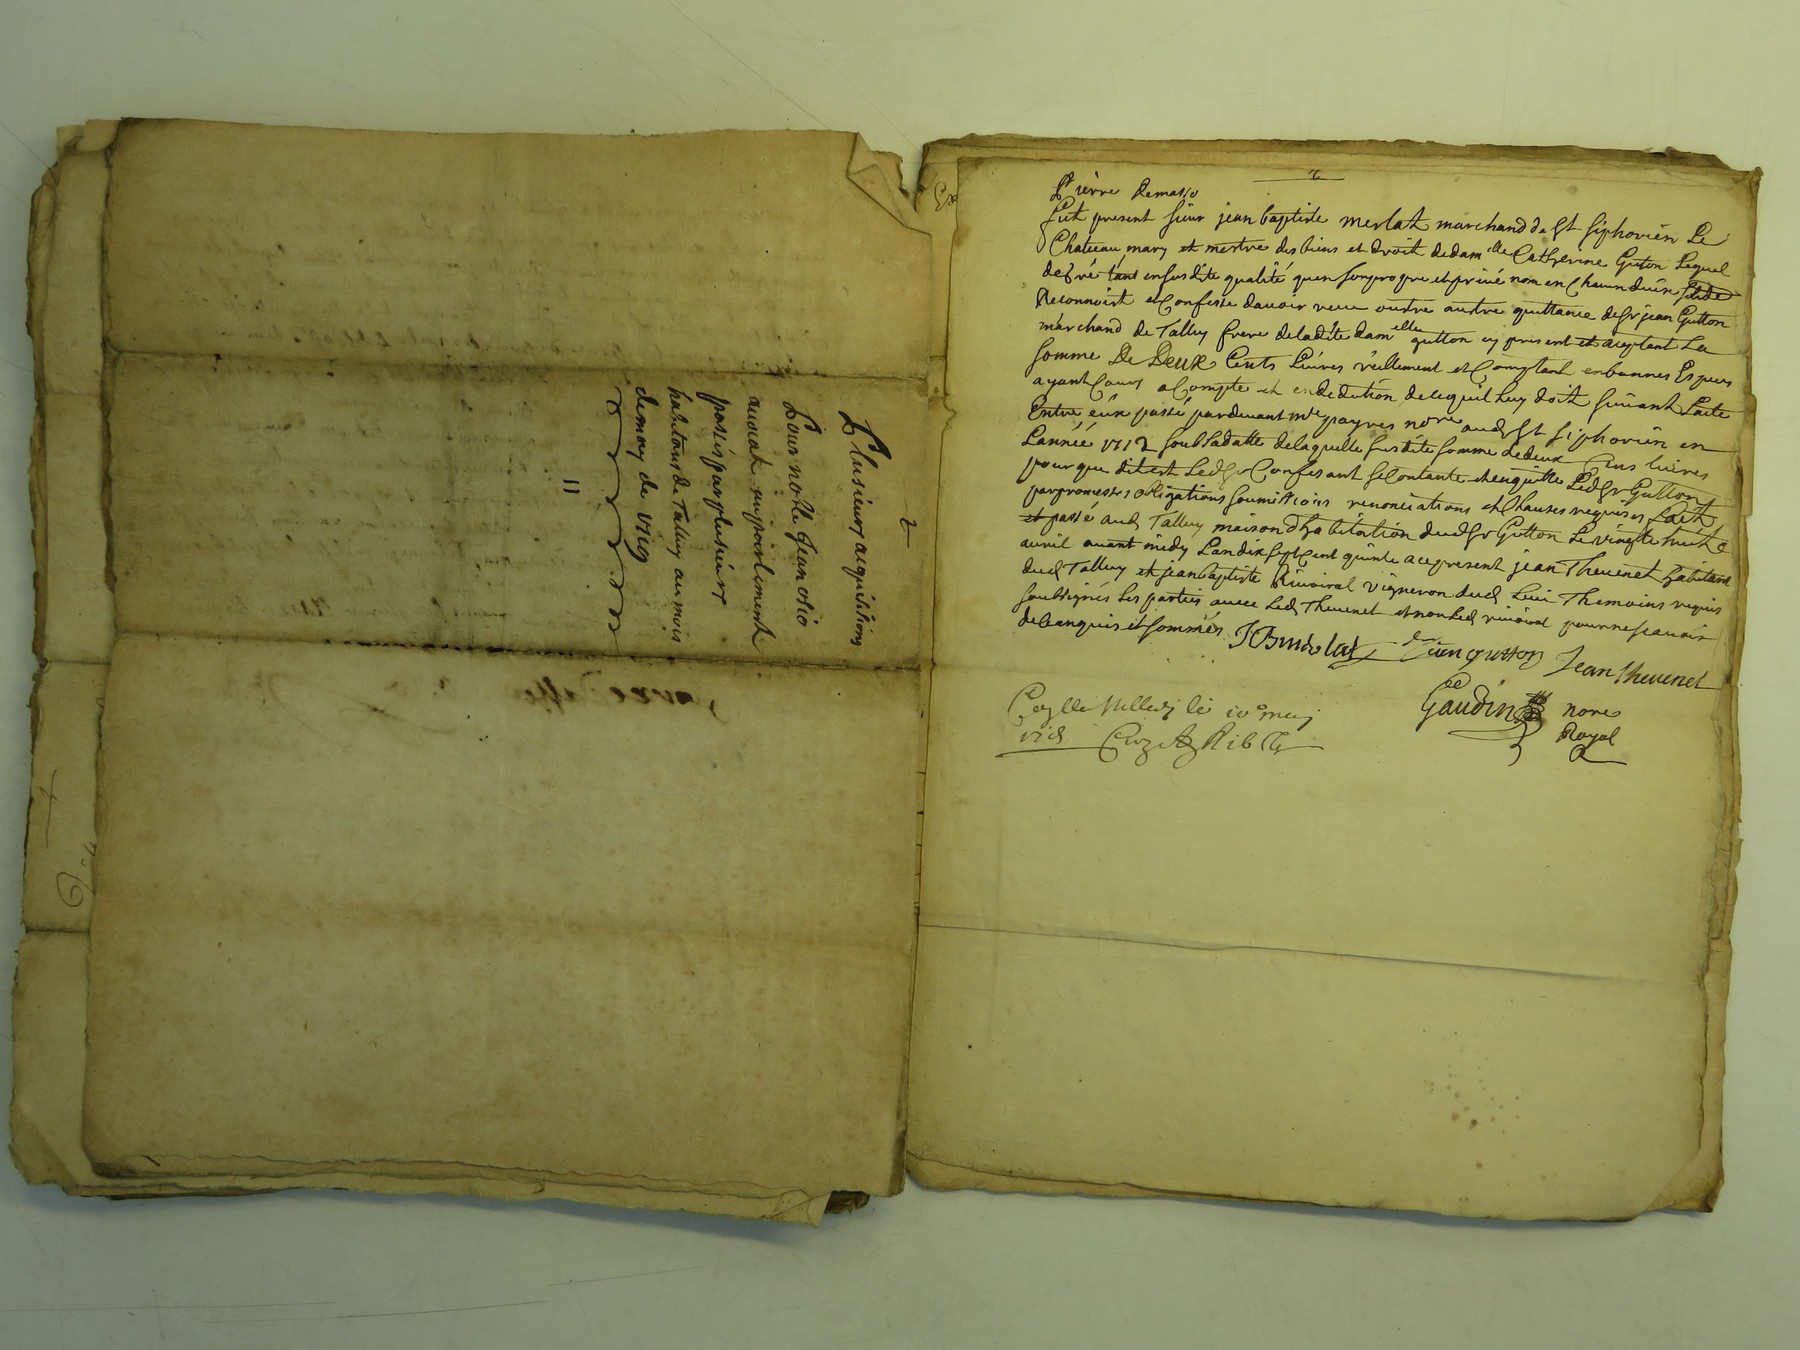 2
Plusieurs acquisitions
Pour noble Jean olio
auocat en parlement
passés par plusieurs
habitans de Talluy au mois
de may de
11
2
Pierre Demasso
Fut present sieur jean baptiste merlat marchand de St siphorien Le
Chateau mary et mestre des biens et droit de dam.lle Catherine Guton Lequel
de gré tant en susdite qualité quen son propre et privé nom en
Reconnoist et Confesse dauoir receu outre autre quittance de Sr jean Gutton
marchand de Talluy frere de ladite dam elle gutton cy present et aceptant La
somme De Deux Cents Liures réellement et Comptant en bonnes Especes
ayant Cours a Compte et en dedution de ce quil Luy doit suiuant Lacte
Entre eux passé par deuant mte payres no re aud St siphorien en
Lannée 1712 soubs sa datte de laquelle susdite somme de deux Cens liures
pour que dit est Led Sr Confesant se Contante et en quitte Led Sr Gutton
par promesses obligations soumissions renonciations et Clauses requises fait
et passé aud Talluy maison dhabitation dud Sr Gutton Le vingte huit e
auril auant midy Lan dix sept cent quinte ace present jean Theuenet habitant
dud Talluy et jean baptiste Riuoiral vigneron dud Lieu Themoins requis
soubsignés Les parties auec Led Theuenet et non Led riuoiral pour ne scauoir
de ce enquis et sommés JB merlat Jean gutton Jean theuenet
Gaudin nore
Royal
le 10e may